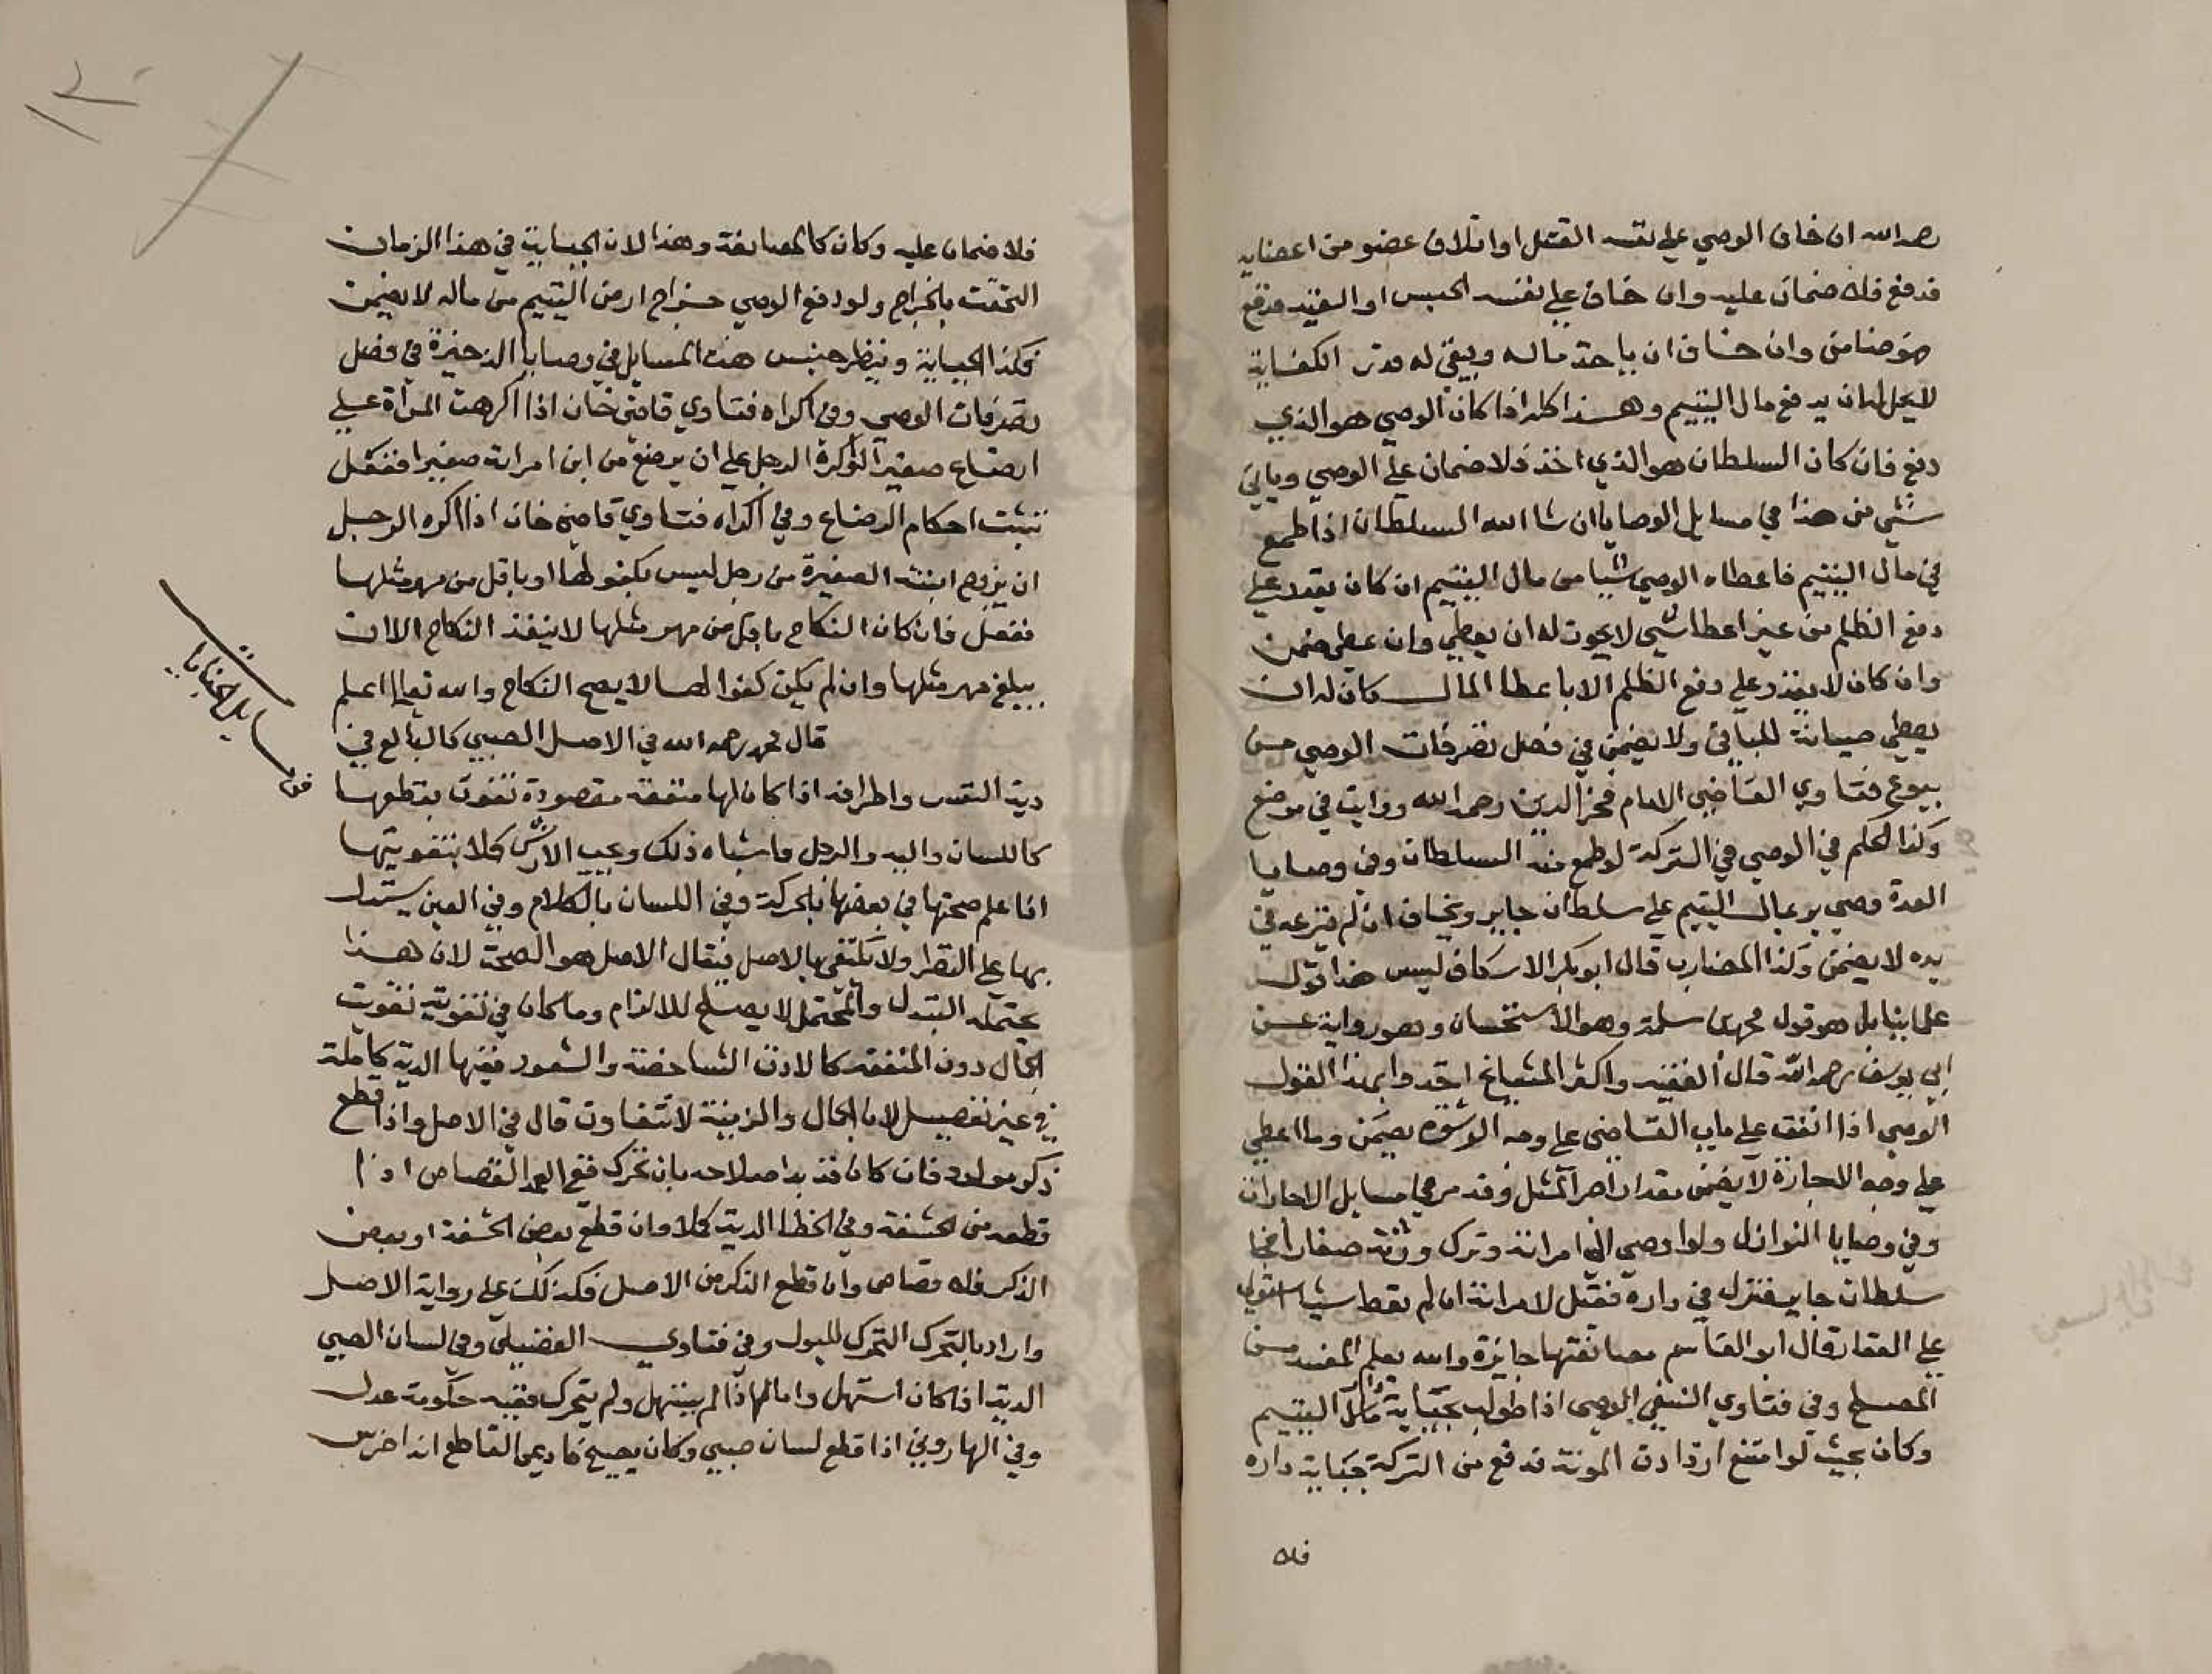 رحمه الله ان خاف الوصي على نفسه القتل او اتلاف عضو من اعضايه
فدفع فلا ضمان عليه وان خاف على نفسه الحبس او القيد فدفع
فهو ضامن وان خاف ان ياخذ ماله ويبقى له قدر الكفاية
لا يحل له ان يدفع مال اليتيم وهذا كله اذا كان الوصي هو الذي
دفع فان كان السلطان هو الذي اخذ فلا ضمان على الوصي وياتي
شي من هذا في مسايل الوصايا ان شا الله السلطان اذا طمع
في مال اليتيم فاعطاه الوصي شيا من مال اليتيم ان كان يقدر على
دفع الظلم من غير اعطا شي لا يجوز له ان يعطي وان عطى ضمن
وان كان لا يقدر على دفع الظلم الا باعطا المال كان له ان
يعطي صيانة للباقي ولا يضمن في فصل تصرفات الوصي من
بيوع فتاوي القاضي الامام فخر الدين رحمه الله ورايت في موضع
وكذا الحكم في الوصي في التركة لو طمع فيه السلطان وفي وصايا
العدة وصي يو بمال اليتيم على سلطان جاير ويخاف ان لم ينزعه في
يده لا يضمن وكذا المضارب قال ابو بكر الاسكاف ليس هذا قول
علماينا بل هو قول محمد بن سلمة وهو الاستحسان وهو رواية عن
ابي يوسف رحمه الله قال الفقيه واكثر المشايخ اخذوا بهذا القول
الوصي اذا انفق على باب القاضي على وجه الرشوة يضمن وما اعطى
على وجه الاجارة لا يضمن مقدار اجر المثل وقد مر في مسايل الاجارات
وفي وصايا النوازل ولو اوصى الى امراته وترك ورثة صغارا فجا
سلطان جاير فنزل في داره فقيل لامراته ان لم تعط شيا استولى
على العقار قال ابو القاسم مصانعتها جايزة والله يعلم المفسد من
المصلح وفي فتاوي النسفي الوصي اذا طولب بجباية مال اليتيم
وكان بحيث لو امتنع ازدادت المونة فدفع من التركة جباية داره
فلا
فلا ضمان عليه وكان كالمصانعة وهذا لان الجباية في هذا الزمان
التحقت بالخراج ولو دفع الوصي خراج ارض اليتيم من ماله لا يضمن
فكذا الجباية وينظر جنس هذه المسايل في وصايا الذخيرة في فصل
تصرفات الوصي وفي اكراه فتاوي قاضي خان اذا اكرهت المراة على
ارضاع صغير او اكره الرجل على ان يرضع من ابن امراته صغيرا ففعل
تثبت احكام الرضاع وفي اكراه فتاوي قاضي خان اذا اكره الرجل
ان يزوج ابنته الصغيرة من رجل ليس بكفو لها او باقل من مهر مثلها
ففعل فان كان النكاح باقل من مهر مثلها لا ينفذ النكاح الا ان
يبلغ مهر مثلها وان لم يكن كفوا لها لا يصح النكاح والله تعالى اعلم
قال محمد رحمه الله في الاصل الصبي كالبالغ في
دية النفس واطرافه اذا كان لها منفعة مقصودة تفوت بقطعها
كاللسان واليد والرجل وما شاه ذلك ويجب الارش كلا بتفويتها
اذا علم صحتها في بعضها بالحركة وفي اللسان بالكلام وفي العين يستدل
بها على النظر ولا يكتفى بالاصل فيقال الاصل هو الصحة لان هذا
يحتمل التبدل والمحتمل لا يصلح للالزام وما كان في تفويته تفويت
الجمال دون المنفعة كالاذن الشاخصة والشعور ففيها الدية كاملة
من غير تفصيل لان الجمال والزينة لا تتفاوت قال في الاصل واذا قطع
ذكر مولود فان كان قد بدا صلاحه بان تحرك ففي العمد القصاص اذا
قطعه من الحشفة وفي الخطا الدية كملا وان قطع بعض الحشفة او بعض
الذكر فلا قصاص وان قطع الذكر من الاصل فكذلك على رواية الاصل
واراد بالتحرك التحرك للبول وفي فتاوي الفضيلي وفي لسان الصبي
الدية اذا كان استهل واما اذا لم يستهل ولم يتحرك ففيه حكومة عدل
وفي الهاروني اذا قطع لسان صبي وكان يصيح فادعى القاطع انه اخرس
في مسايل الجنايات